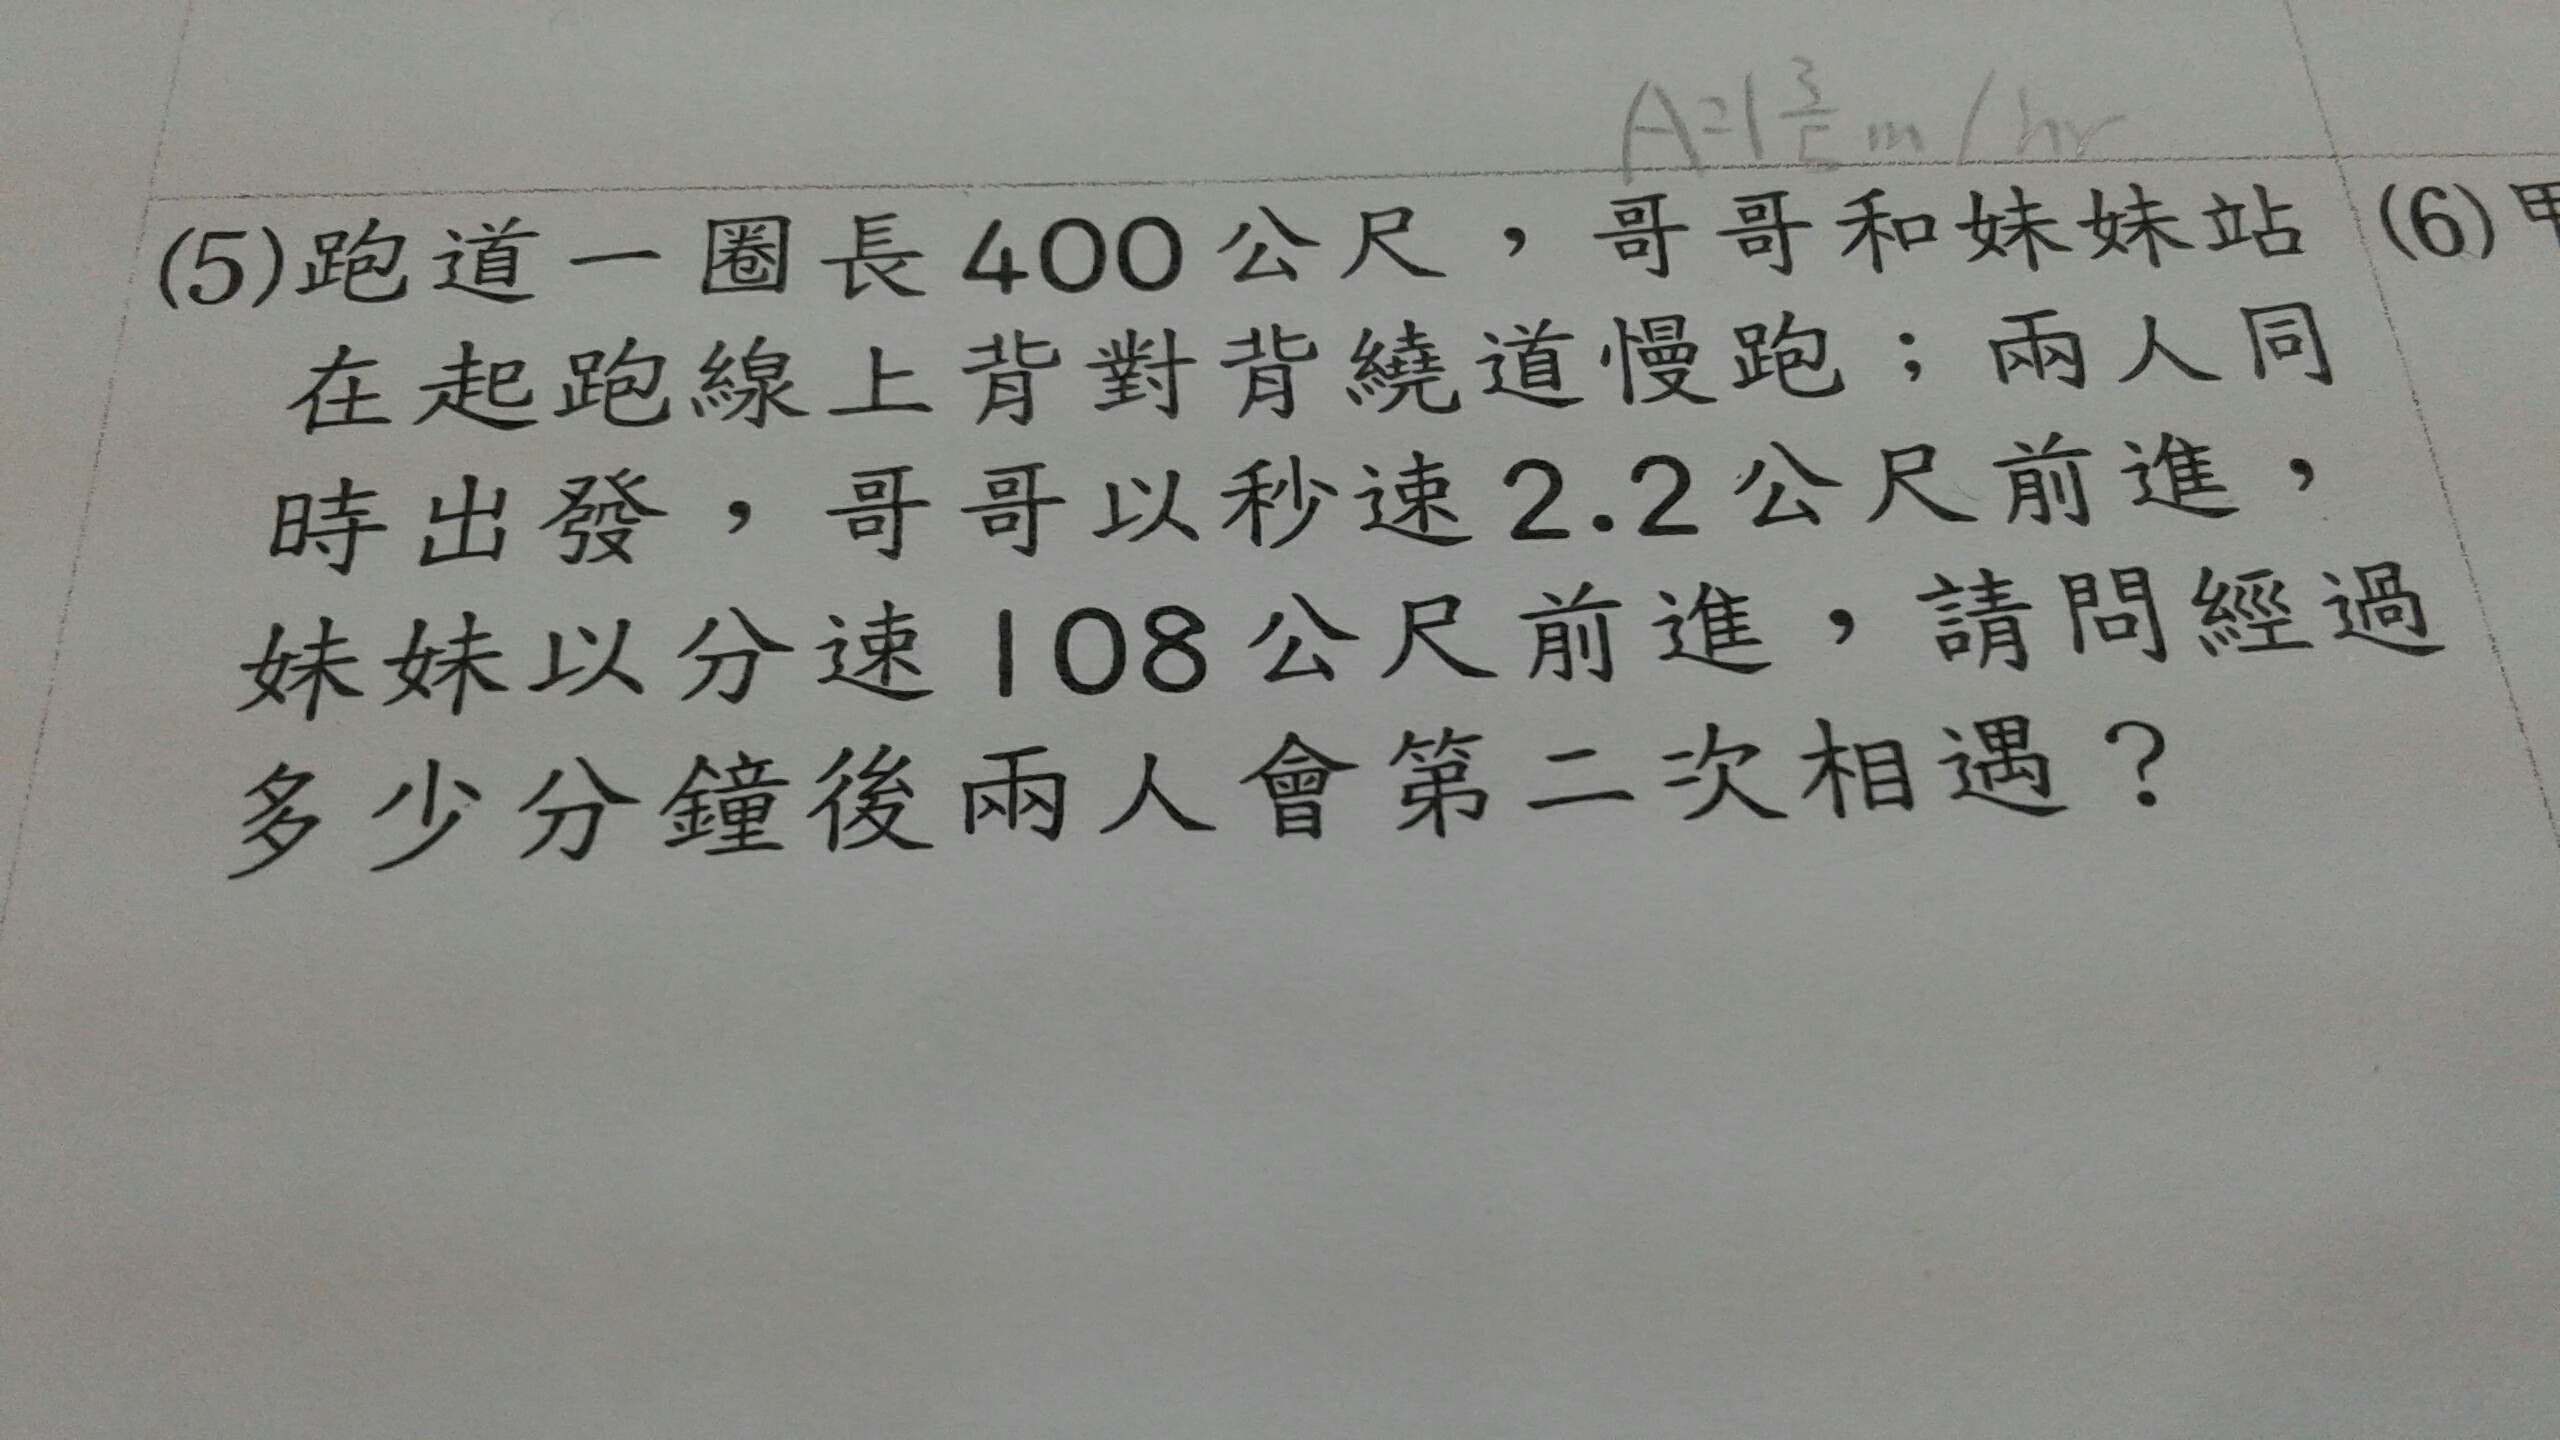 A=1 3/5 m/hr
(5)跑道一圈長400公尺，哥哥和妹妹站
在起跑線上背對背繞道慢跑；兩人同
時出發，哥哥以秒速2.2公尺前進，
妹妹以分速108公尺前進，請問經過
多少分鐘後兩人會第二次相遇？
(6)甲